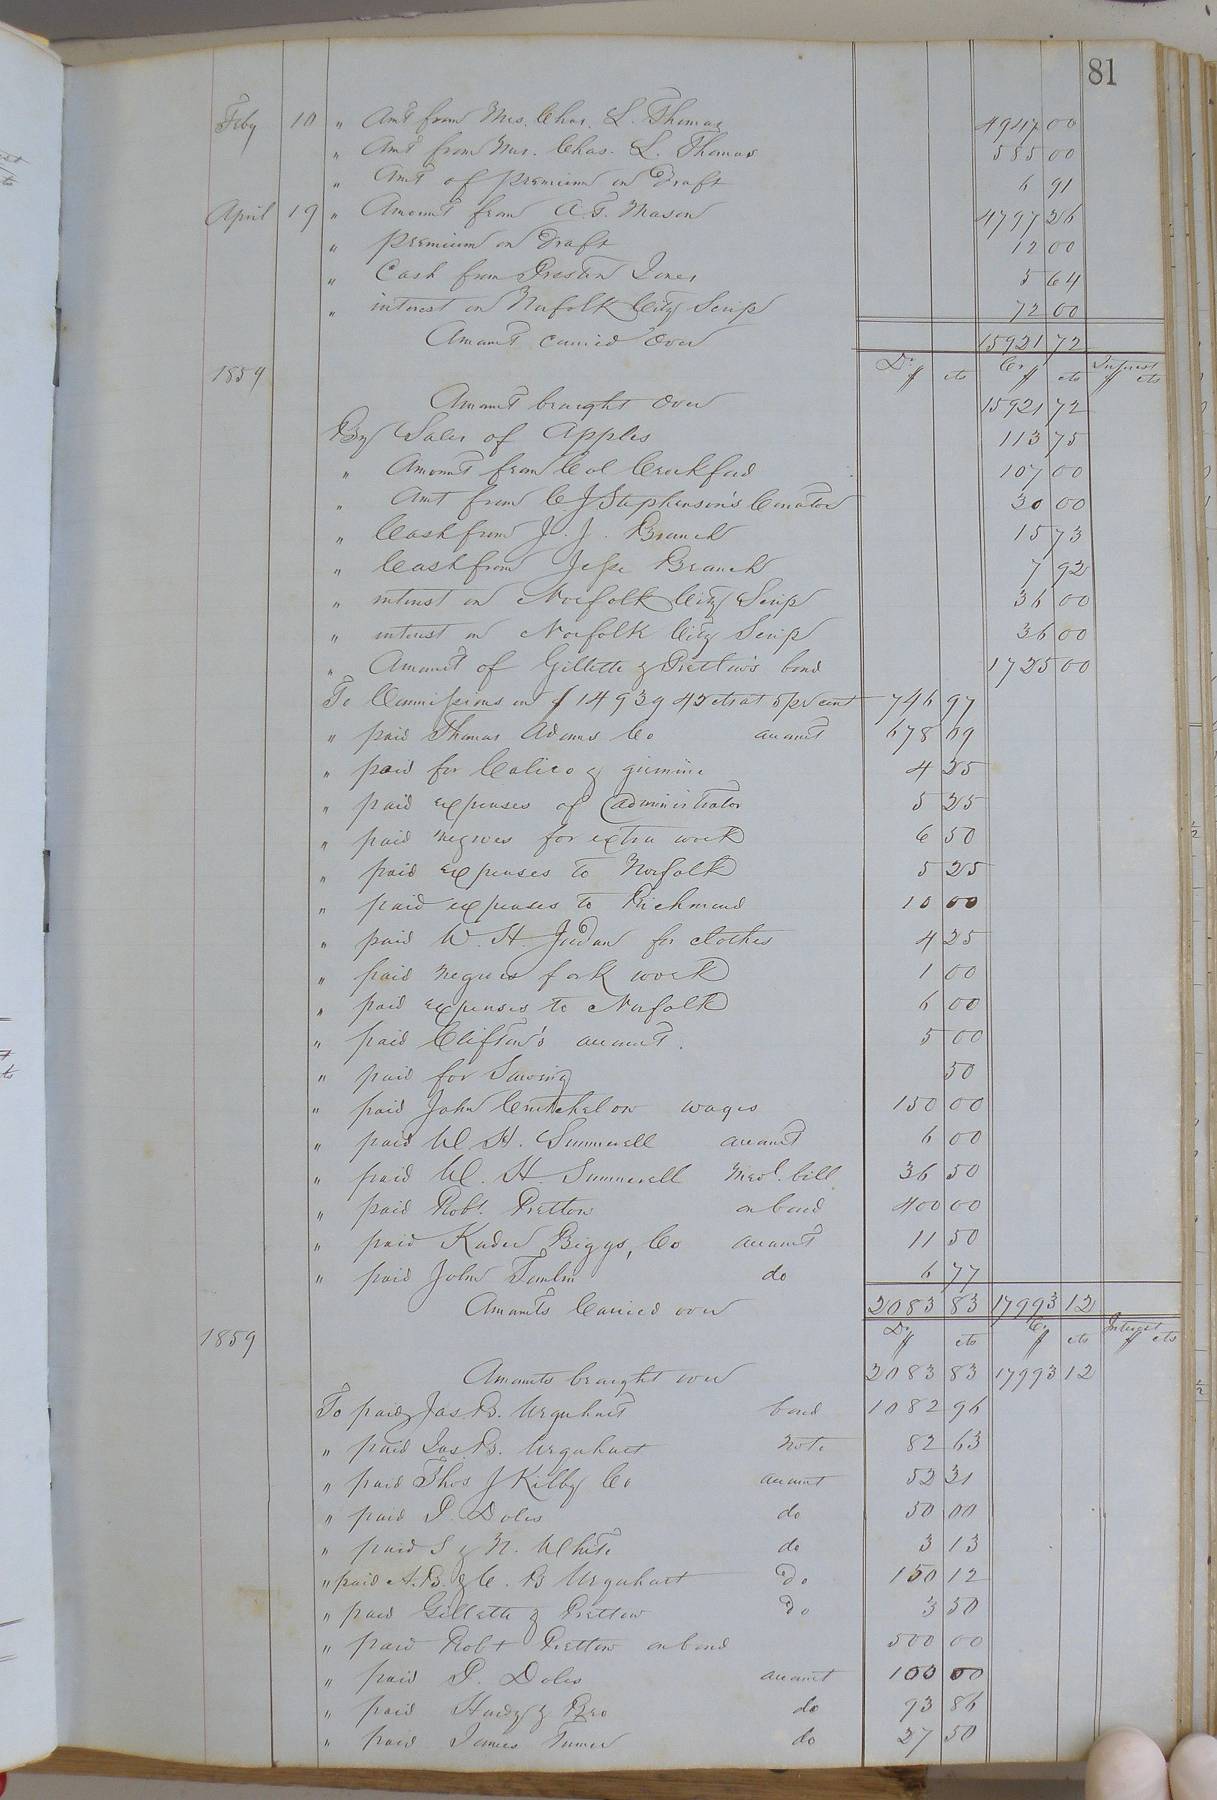 81
Feby 10 " Amt from Mrs. Chas. L. Thomas 4947 00
" Amt from Mrs. Chas. L. Thomas 585 00
" Amt of premium on Draft 6 91
April 19 " Amount from A. T. Mason 4797 26
" premium on Draft 12 00
" Cash from Preston Jones 5 64
" interest on Norfolk City Scrip 72 00
Amount carried Over 15921 72
1859 Dr $ cts Cr $ cts Interest $ cts
Amount brought Over 15921 72
By Sales of Apples 113 75
" Amount from Col Crockford 107 00
" Amt from C J Stephenson's Curator 30 00
" Cash from J. J. Branch 15 73
" Cash from Jesse Branch 7 92
" interest on Norfolk City Scrip 36 00
" interest on Norfolk City Scrip 36 00
" Amount of Gillette & Pretlow's bond 1725 00
To Commissions on $14939 45 cts at 5 pr cent 746 97
" paid Thomas Adams Co account 678 09
" paid for Calico & 4 25
" paid expenses of administrator 5 25
" paid negroes for extra work 6 50
" paid expenses to Norfolk 5 25
" paid expenses to Richmond 10 00
" paid W. H. Judan for clothes 4 25
" paid negroes fork work 1 00
" paid expenses to Norfolk 6 00
" paid Clifton's account. 5 00
" paid for Sawing 50
" paid John Crutchelow wages 150 00
" paid W H. Summerell account 6 00
" paid W. H Summerell Medl. bill 36 50
" paid Robt. Pretlow on bond 400 00
" paid Kader Biggs, Co account 11 50
" paid John Tomlin do 6 77
Amounts Carried over 2083 83 17993 12
1859 Dr $ cts Cr $ cts Interest $ cts
Amounts brought over 2083 83 17993 12
To paid Jas. B. Urquhart bond 1082 96
" paid Jas. B. Urquhart Note 82 63
" paid Thos J Kilby Co account 52 31
" paid P. Doles do 50 00
" paid S & N. White do 3 13
" paid A. B. & C. B Urquhart Do 150 12
" paid Gillette & Pretlow Do 3 50
" paid Robt Pretlow on bond 500 00
" paid P. Doles account 100 00
" paid Hardy & Bro do 93 86
" paid James Turner do 27 50